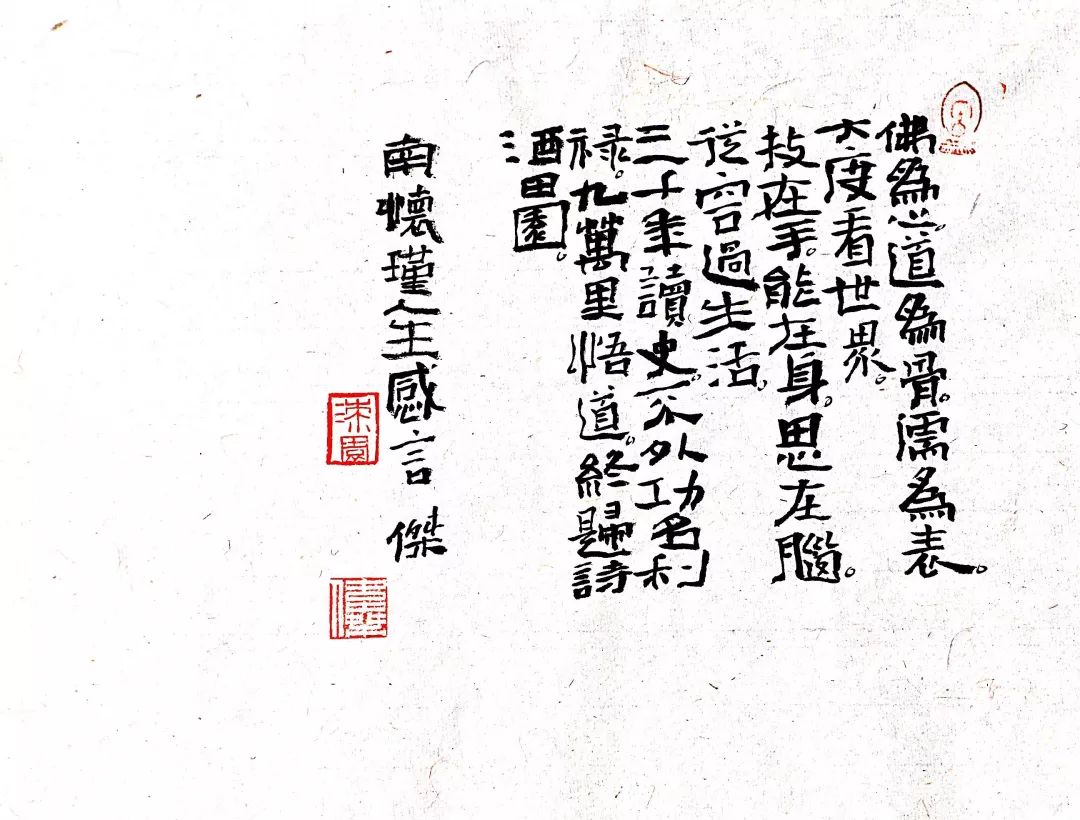 佛為心。道為骨。濡為表。
大度看世界。
技在手。能在身。思在腦。
從容過生活。
三千年讀史。不外功名利
祿。九萬里悟道。終歸詩
酒田園。
南懷瑾人生感言 傑